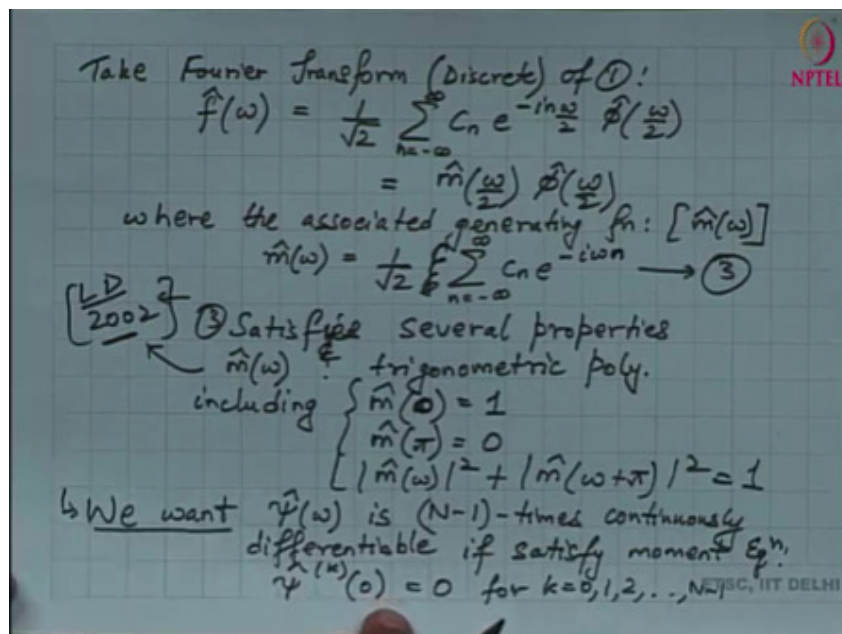 Take Fourier Transform (Discrete) of ①:
NPTEL
f̂(ω) = 1/√2 ∑_{n=-∞}^{∞} Cn e^{-inω/2} φ̂(ω/2)
= m̂(ω/2) φ̂(ω/2)
where the associated generating fn: [m̂(ω)]
m̂(ω) = 1/√2 ∑_{n=-∞}^{∞} Cn e^{-iωn} → ③
[LD 2002] ③ Satisfies several properties
m̂(ω) : trigonometric poly.
including { m̂(0) = 1
m̂(π) = 0
|m̂(ω)|² + |m̂(ω+π)|² = 1
↳ We want ψ̂(ω) is (N-1)-times continuously
differentiable if satisfy moment Eqⁿ.
ψ̂^(k)(0) = 0 for k=0,1,2,..,N-1
ETSC, IIT DELHI